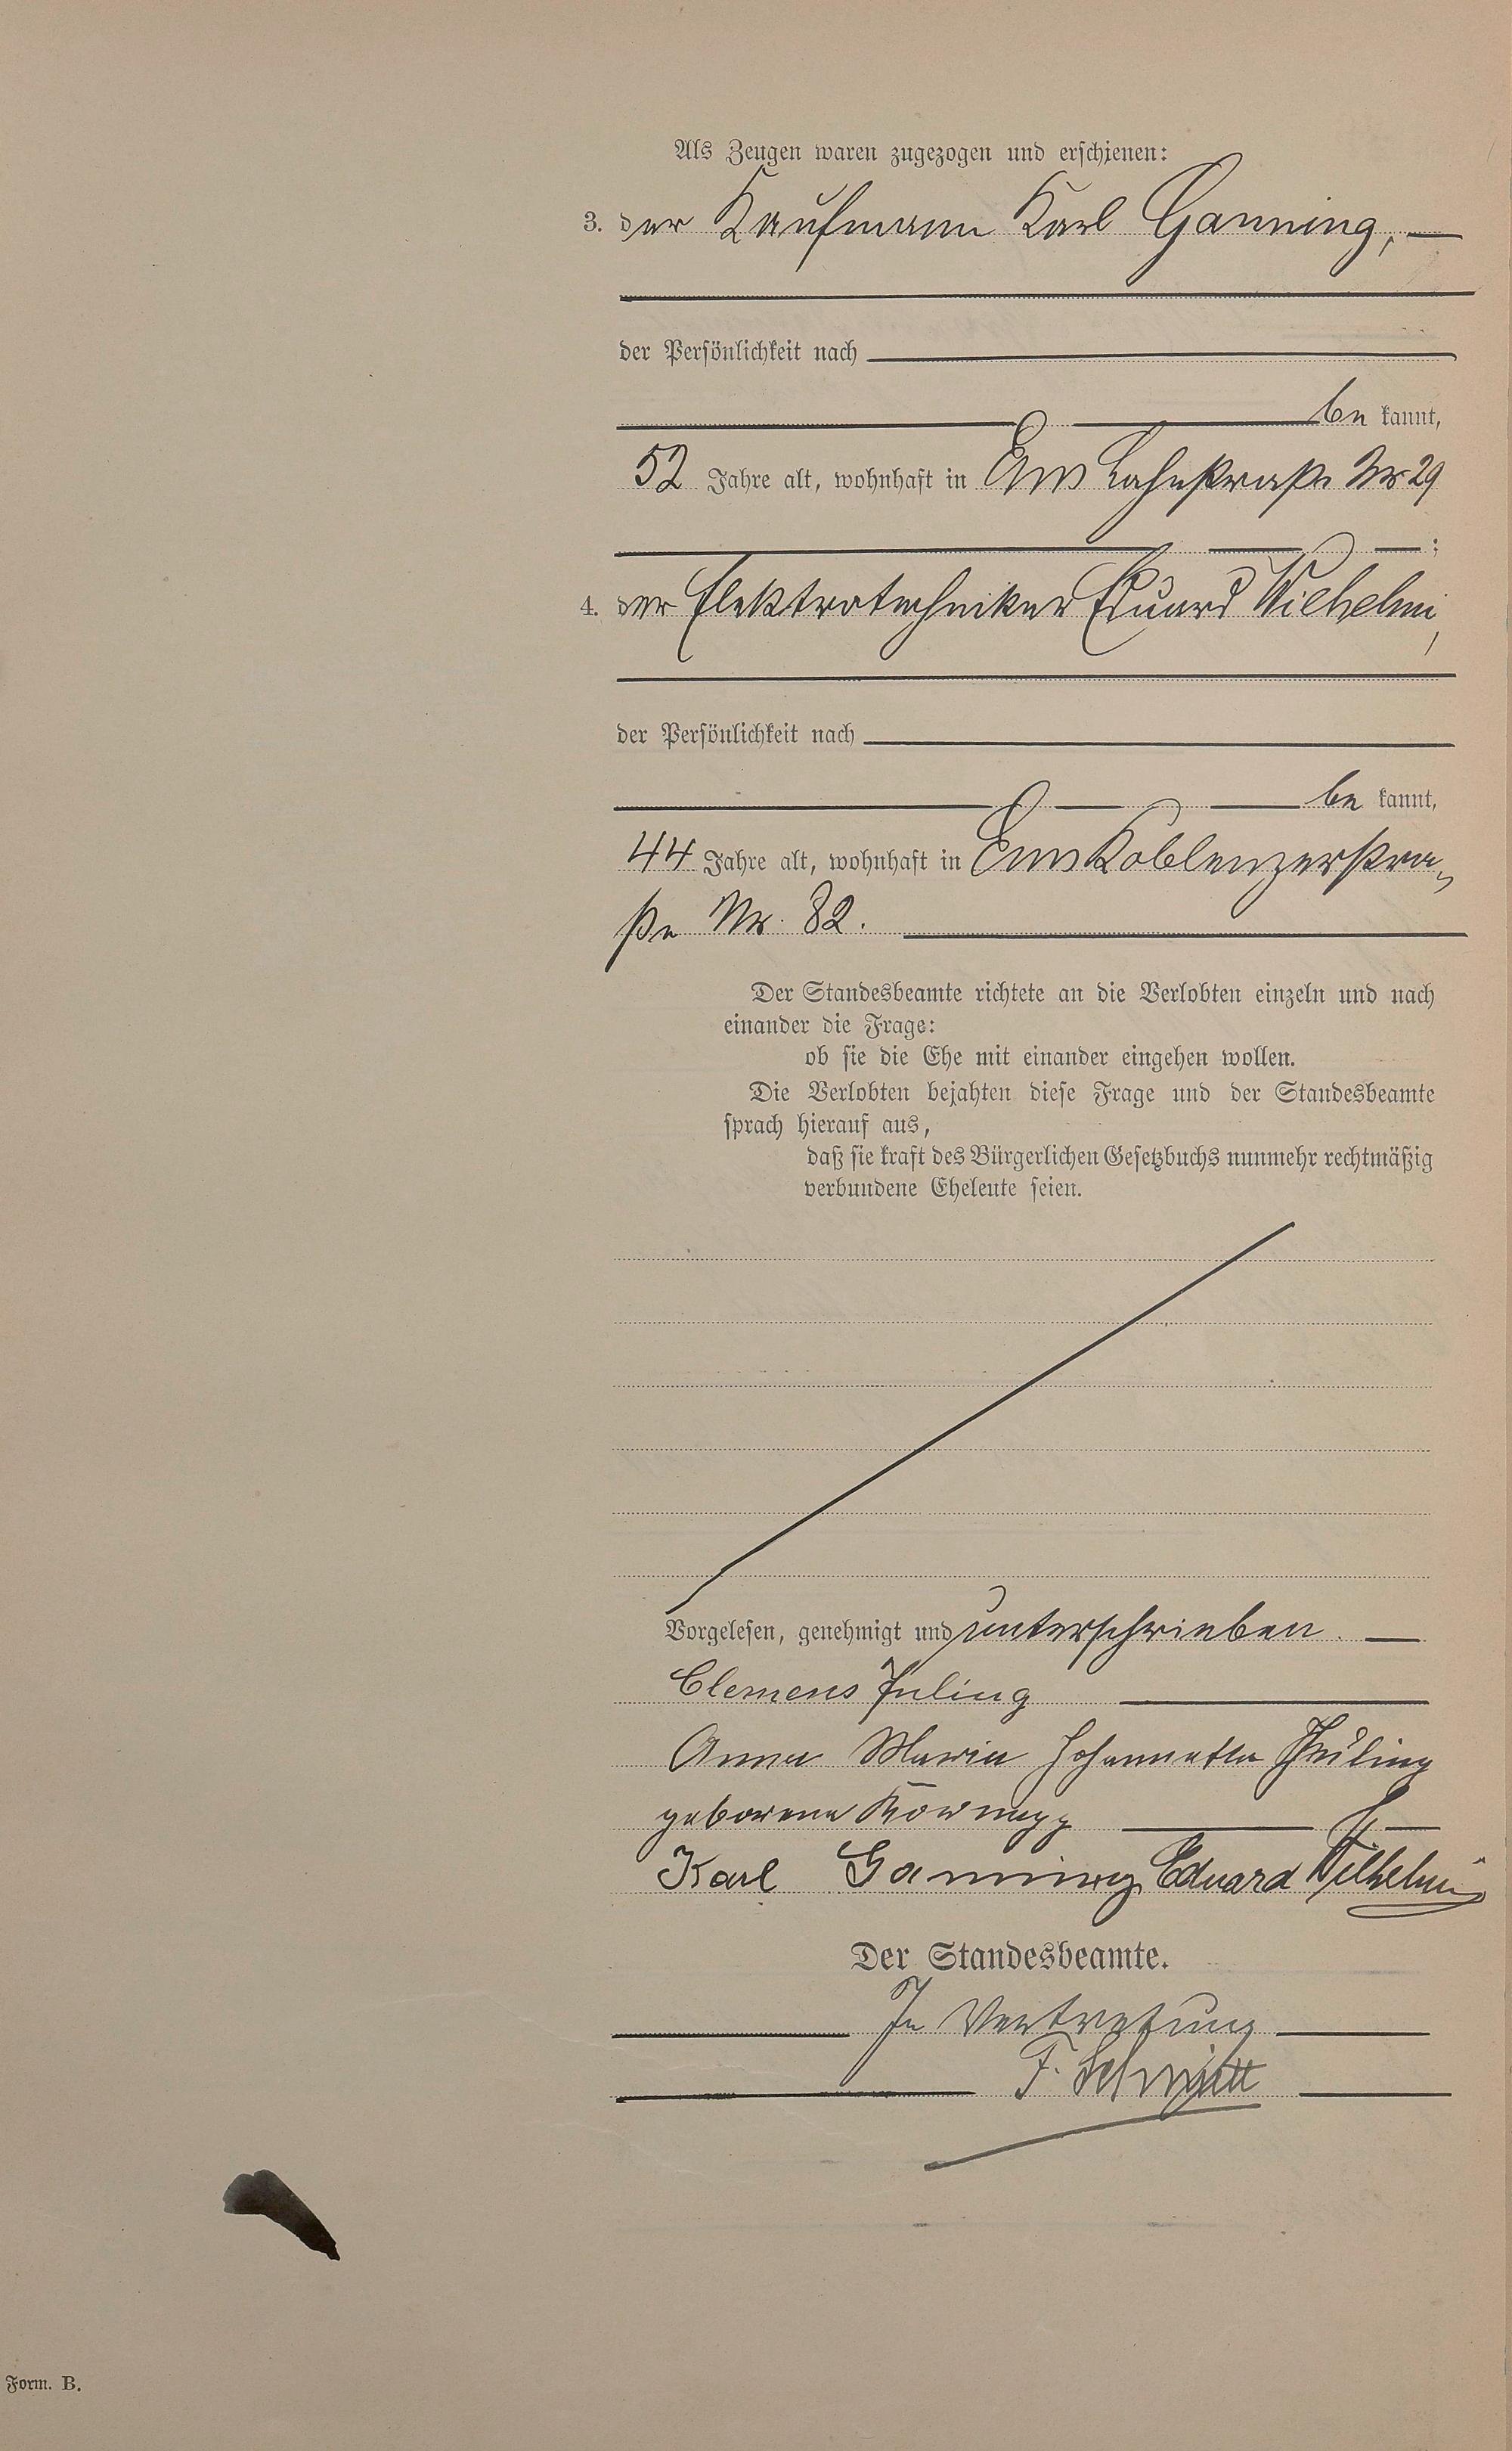 Als Zeugen waren zugezogen und erschienen:
3. der Kaufmann Karl Ganning,
der Persönlichkeit nach
be kannt,
52 Jahre alt, wohnhaft in Ems Lahnstraße Nr 29
;
4. der Elektrotechniker Eduard Wilhelmi,
der Persönlichkeit nach
be kannt,
44 Jahre alt, wohnhaft in Ems Koblenzerstra„
ße Nr. 82.
Der Standesbeamte richtete an die Verlobten einzeln und nach
einander die Frage:
ob sie die Ehe mit einander eingehen wollen.
Die Verlobten bejahten diese Frage und der Standesbeamte
sprach hierauf aus,
daß sie kraft des Bürgerlichen Gesetzbuchs nunmehr rechtmäßig
verbundene Eheleute seien.
Vorgelesen, genehmigt und unterschrieben.
Clemens
Anna Maria Johannetta
geborene
Karl Ganning Eduard Wilhelmi
Der Standesbeamte.
In Vertretung
F. Schmitt
Form. B.